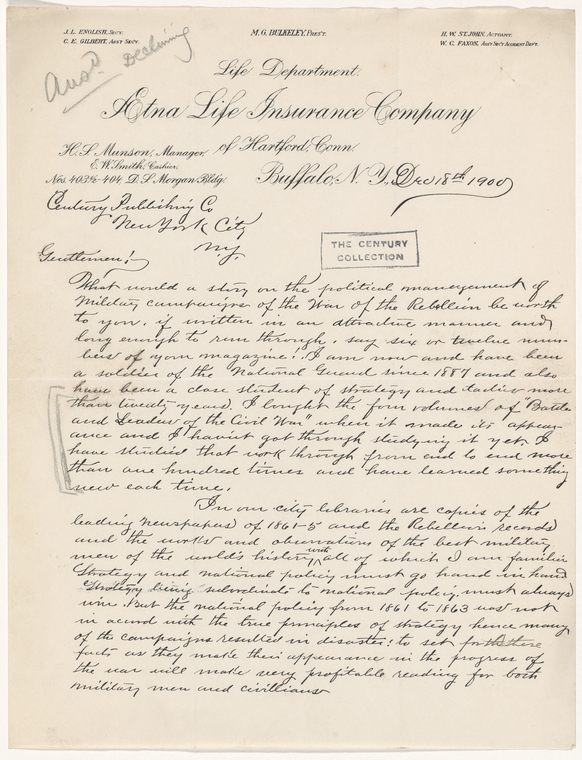 J. L. ENGLISH, SEC'Y.
C. E. GILBERT, ASS'T SEC'Y.
M. G. BULKELEY, PRES'T.
H. W. ST. JOHN, ACTUARY.
W. C. FAXON, ASS'T SEC'Y ACCIDENT DEP'T.
Ansd Declining
Life Department.
Ætna Life Insurance Company
of Hartford, Conn.
H. S. Munson, Manager.
E. W. Smith, Cashier.
Nos. 403½-404 D. S. Morgan Bldg.
Buffalo, N. Y., Dec 18th 1900
Century Publishing Co
New York City
N.Y.
THE CENTURY
COLLECTION
Gentlemen:
What would a story on the political management of
Military campaigns of the War of the Rebellion be worth
to you, if written in an attractive manner and
long enough to run through, say six or twelve num-
bers of your magazine? I am now and have been
a soldier of the National Guard since 1887 and also
have been a close student of strategy and tactics more
than twenty years. I bought the four volumes of "Battles
and Leaders of the Civil War" when it made its appear-
ance and I havn't got through studying it yet. I
have studied that work through from end to end more
than one hundred times and have learned something
new each time.
In our city libraries are copies of the
leading newspapers of 1861-5 and the Rebellion records
and the works and observations of the best military
men of the world's history with all of which I am familiar
Strategy and national policy must go hand in hand
Strategy being subordinate to national policy must always
win. But the national policy from 1861 to 1863 was not
in accord with the true principles of strategy hence many
of the campaigns resulted in disaster: to set forth these
facts as they make their appearance in the progress of
the war will make very profitable reading for both
military men and civillians